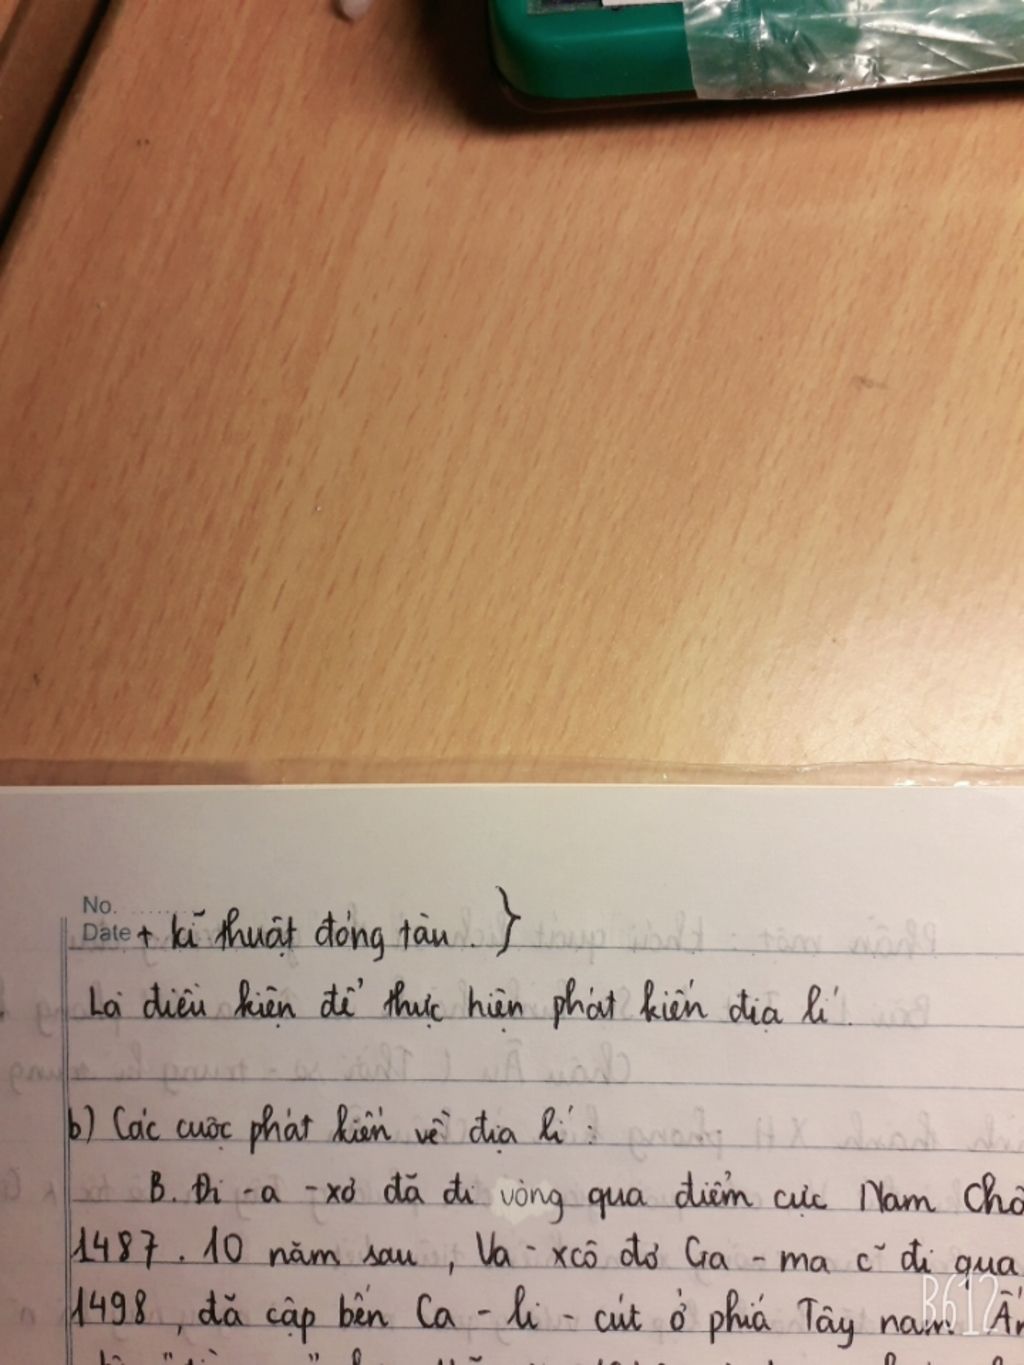 No.
Date + kĩ thuật đóng tàu. }
Là điều kiện để thực hiện phát kiến địa lí.
b) Các cuộc phát kiến về địa lí:
B. Đi - a - xơ đã đi vòng qua điểm cực Nam
1487. 10 năm sau, Va - xcô đơ Ga - ma c~ đi qua
1498, đã cập bến Ca - li - cút ở phía Tây nam
B612